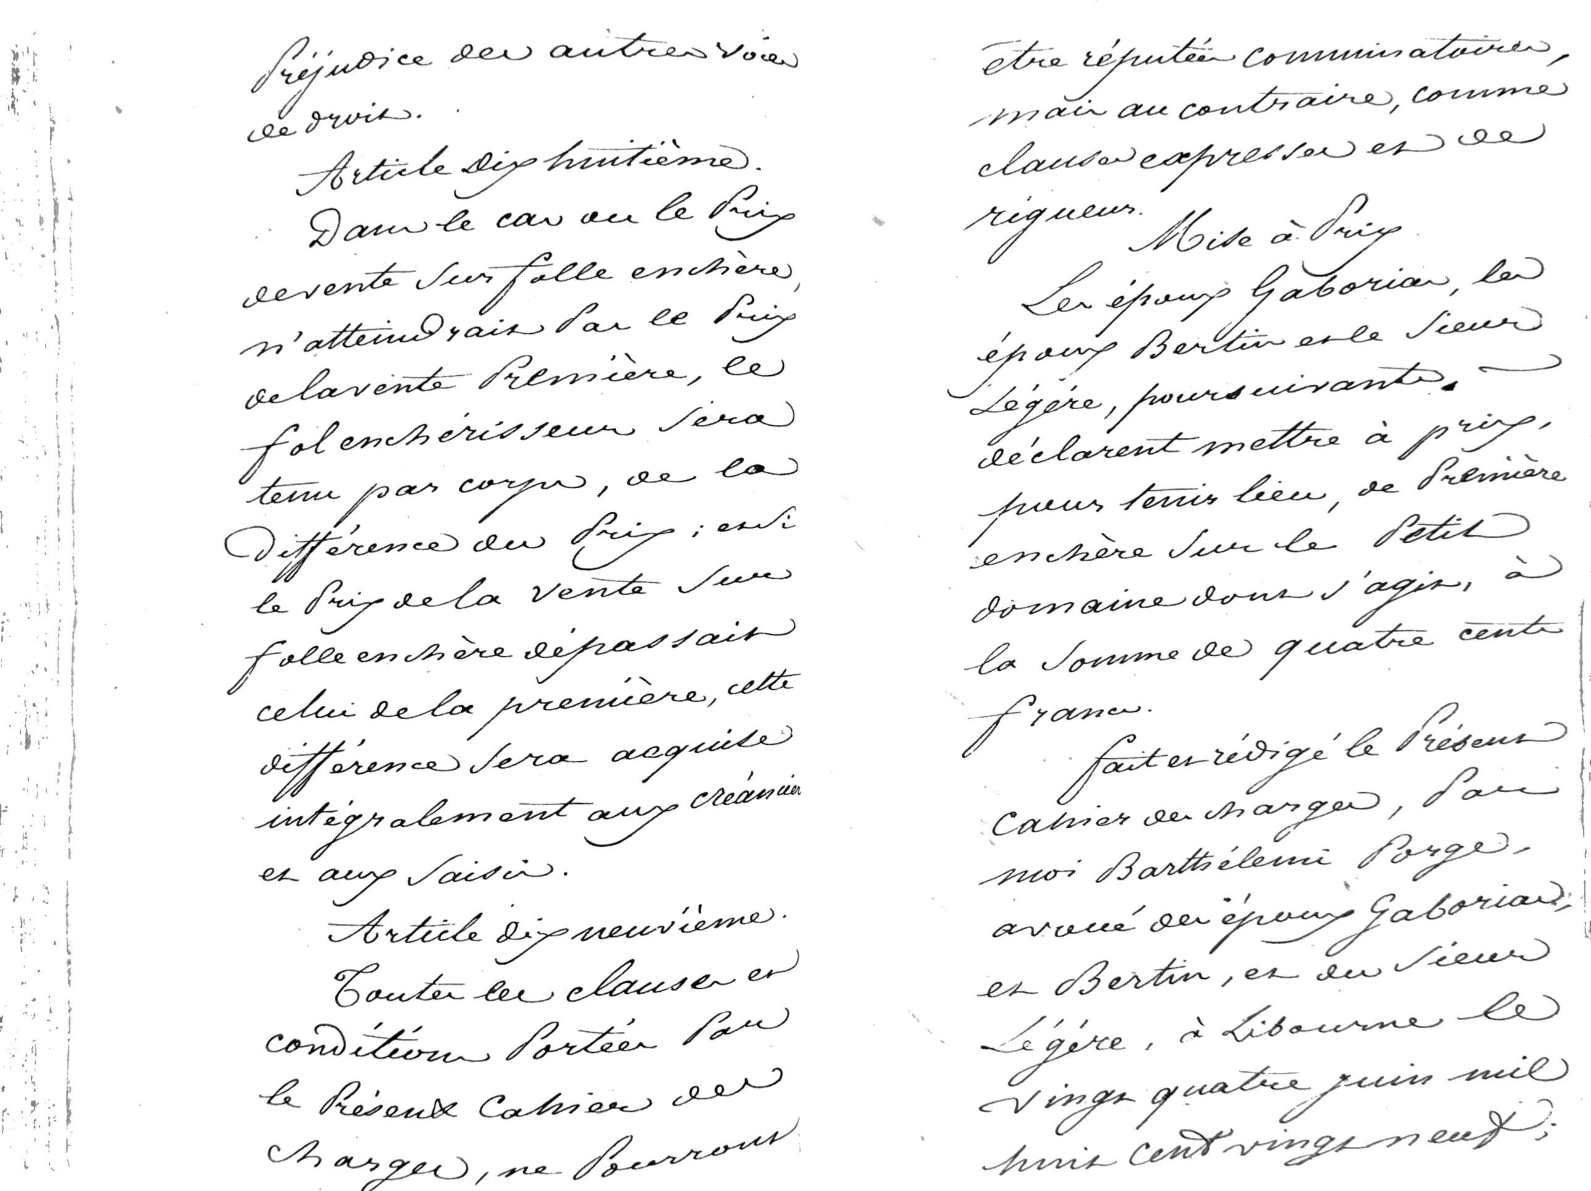 Préjudice des autres voies
de droit.
Article dix huitième.
Dans le cas ou le Prix
de vente sur folle enchère,
n'atteindrait Pas le Prix
de la vente Première, le
fol enchérisseur sera
tenu par corps, de la
différence du Prix ; et si
le Prix de la vente sur
folle enchère dépassait
celui de la première, cette
différence sera acquise
intégralement aux créanciers
et aux saisis.
Article dix neuvième.
Toutes les clauses et
conditions Portées Par
le Présent Cahier des
charges, ne Pourront
être réputées comminatoires,
mais au contraire, comme
clauses expresses et de
rigueur.
Mise à Prix
Les époux Gaboriau, les
époux Bertin et le Sieur
Légére, poursuivants,
déclarent mettre à prix,
pour tenir lieu, de Première
enchère sur le Petit
domaine dont s'agit, à
la somme de quatre cents
francs.
fait et rédigé le Présent
Cahier des charges, Par
moi Barthélemi Porge,
avoué des époux Gaboriau,
et Bertin, et du Sieur
Légére, à Libourne le
vingt quatre juin mil
huit cent vingt neuf ;